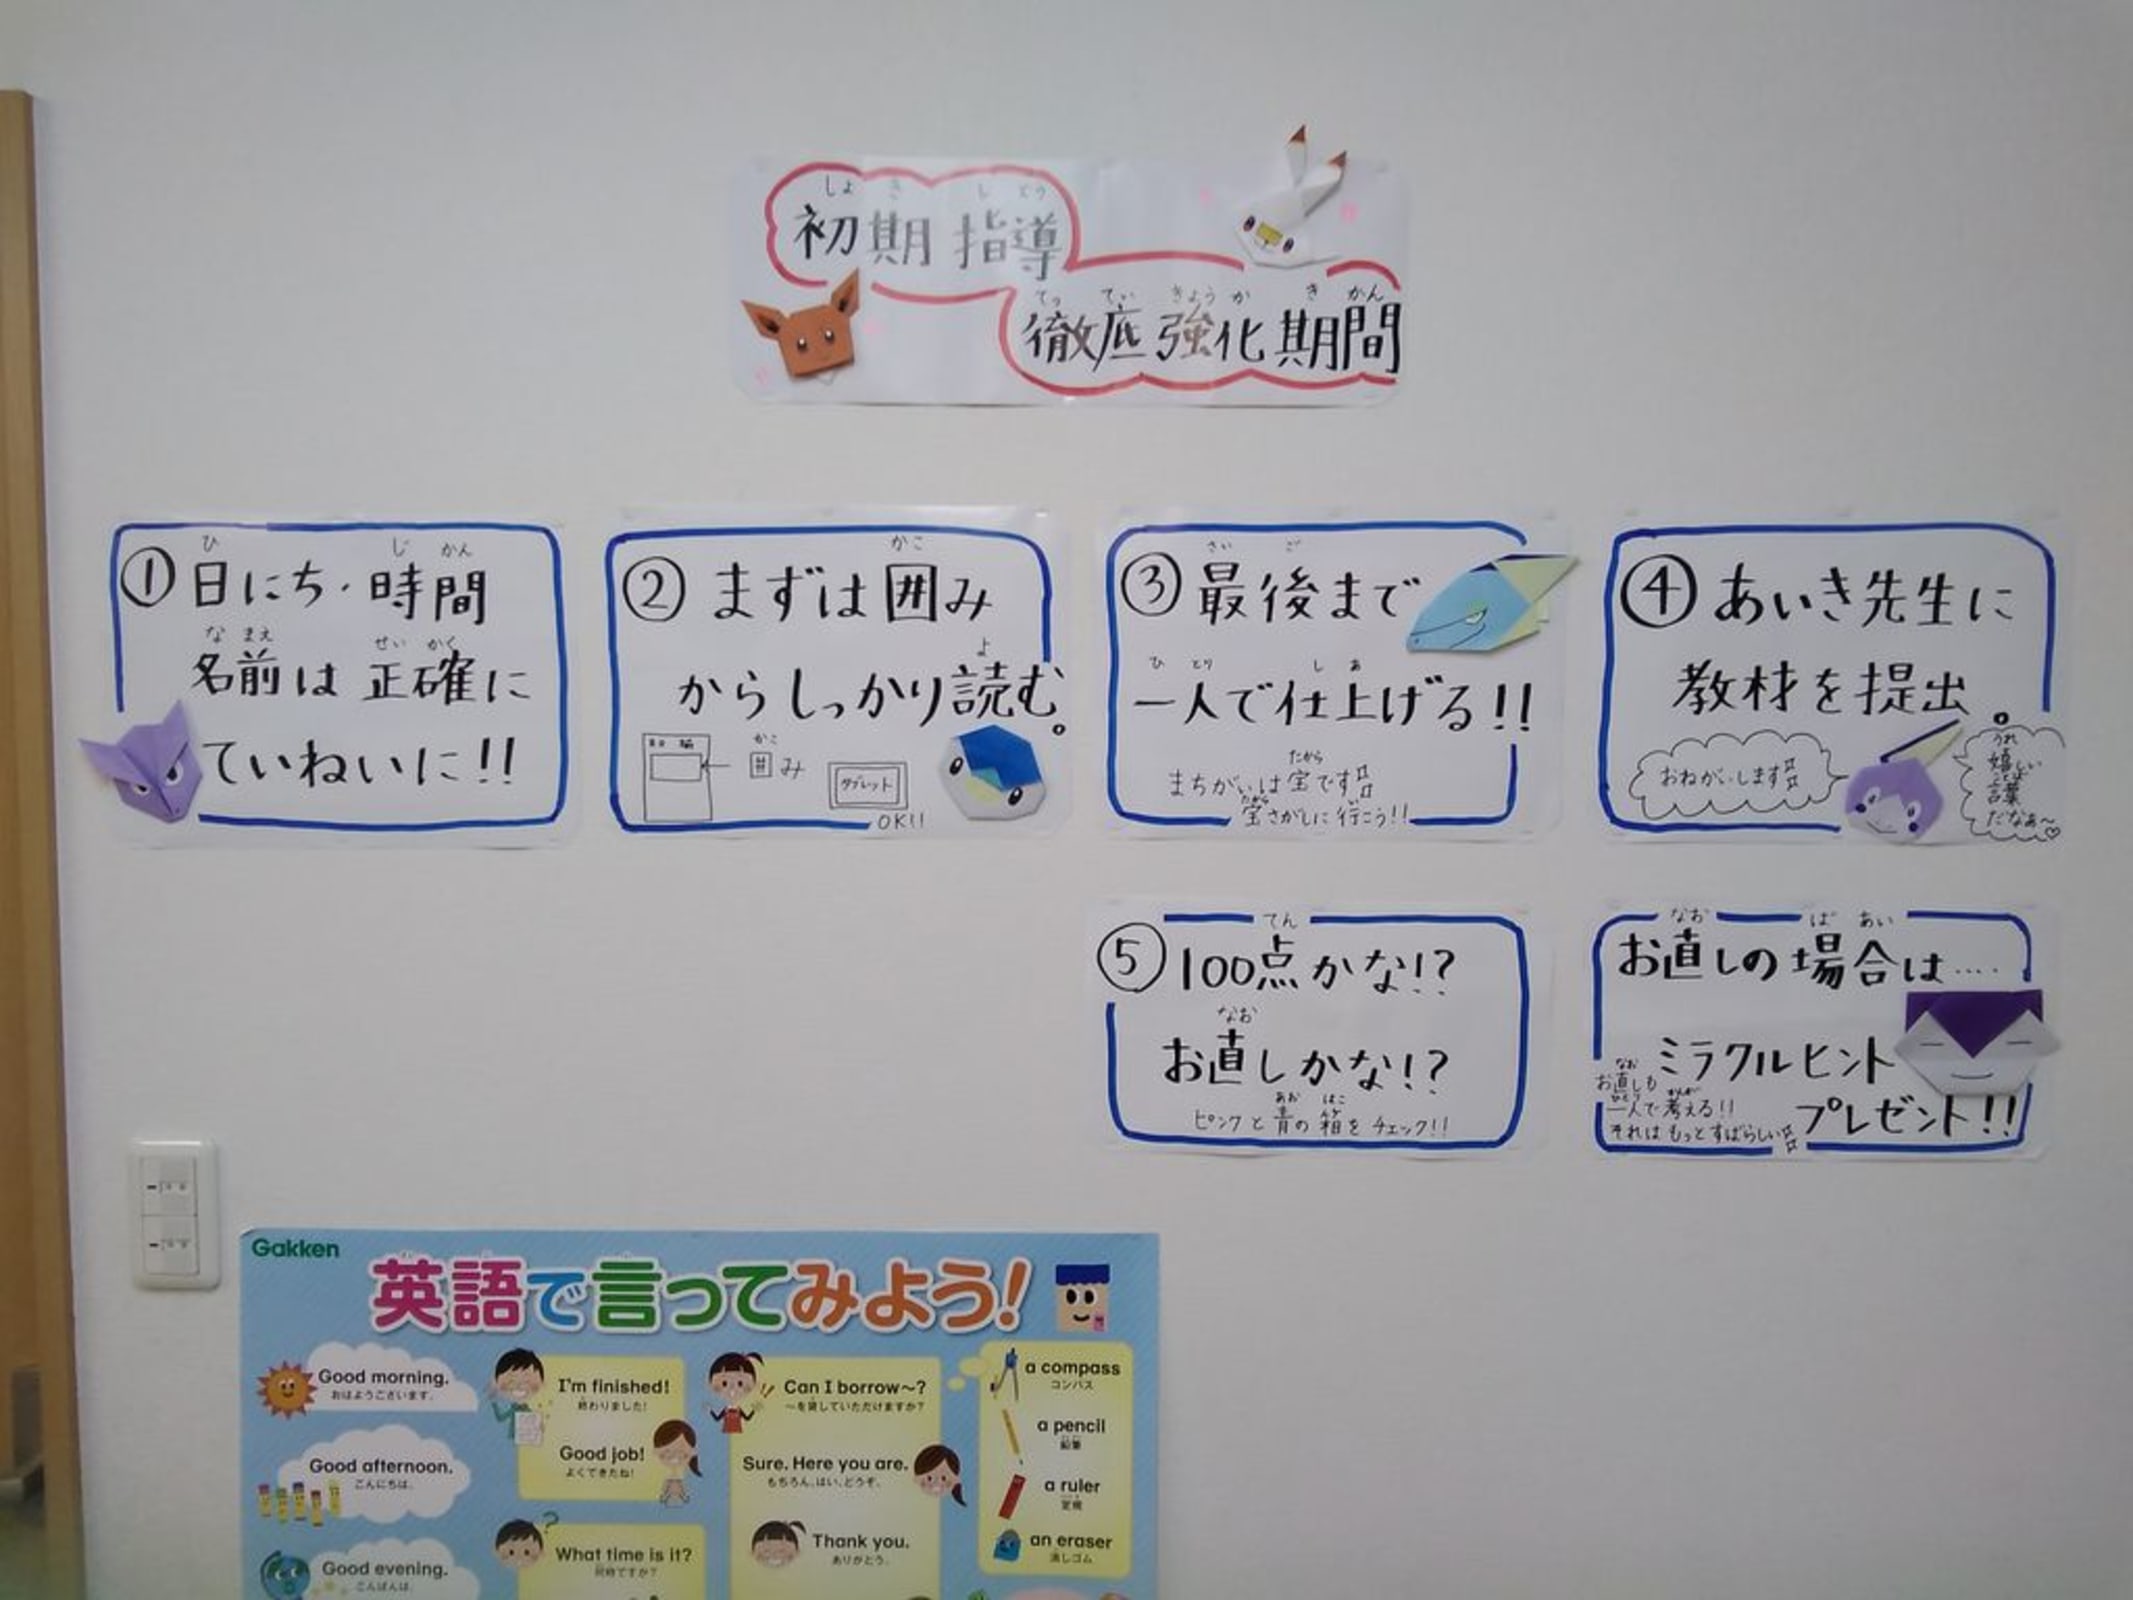 初期指導
徹底強化期間
①日にち・時間
名前は正確に
ていねいに!!
②まずは囲み
からしっかり読む。
囲み
タブレット
OK!!
③最後まで
一人で仕上げる!!
まちがいは宝です
宝さがしに行こう!!
④あいき先生に
教材を提出。
おねがいします
嬉しい
言葉
だなぁ～♡
⑤100点かな!?
お直しかな!?
ピンクと青の箱をチェック!!
お直しの場合は....
ミラクルヒント
プレゼント!!
お直しも
一人で考える!!
それはもっとすばらしい
Gakken
英語で言ってみよう!
Good morning.
おはようございます。
Good afternoon.
こんにちは。
Good evening.
こんばんは。
I'm finished!
終わりました!
Good job!
よくできたね!
What time is it?
何時ですか?
Can I borrow～?
～を貸していただけますか?
Sure. Here you are.
もちろん。はい、どうぞ。
Thank you.
ありがとう。
a compass
コンパス
a pencil
鉛筆
a ruler
定規
an eraser
消しゴム